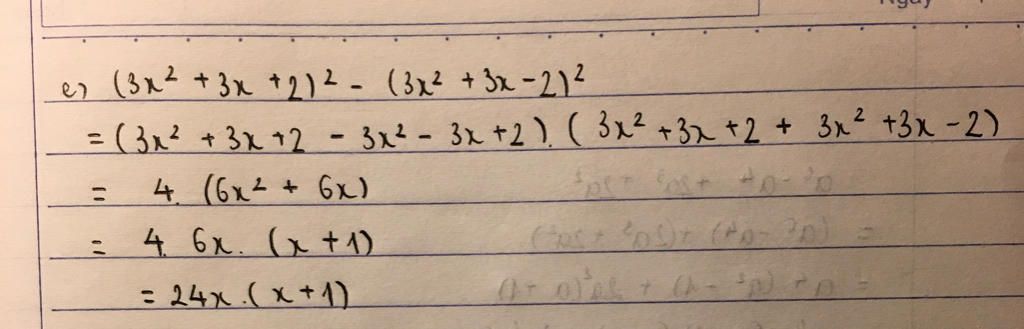 Ngày
e) (3x² + 3x + 2)² - (3x² + 3x - 2)²
= (3x² + 3x + 2 - 3x² - 3x + 2). (3x² + 3x + 2 + 3x² + 3x - 2)
= 4. (6x² + 6x)
= 4. 6x. (x + 1)
= 24x. (x + 1)